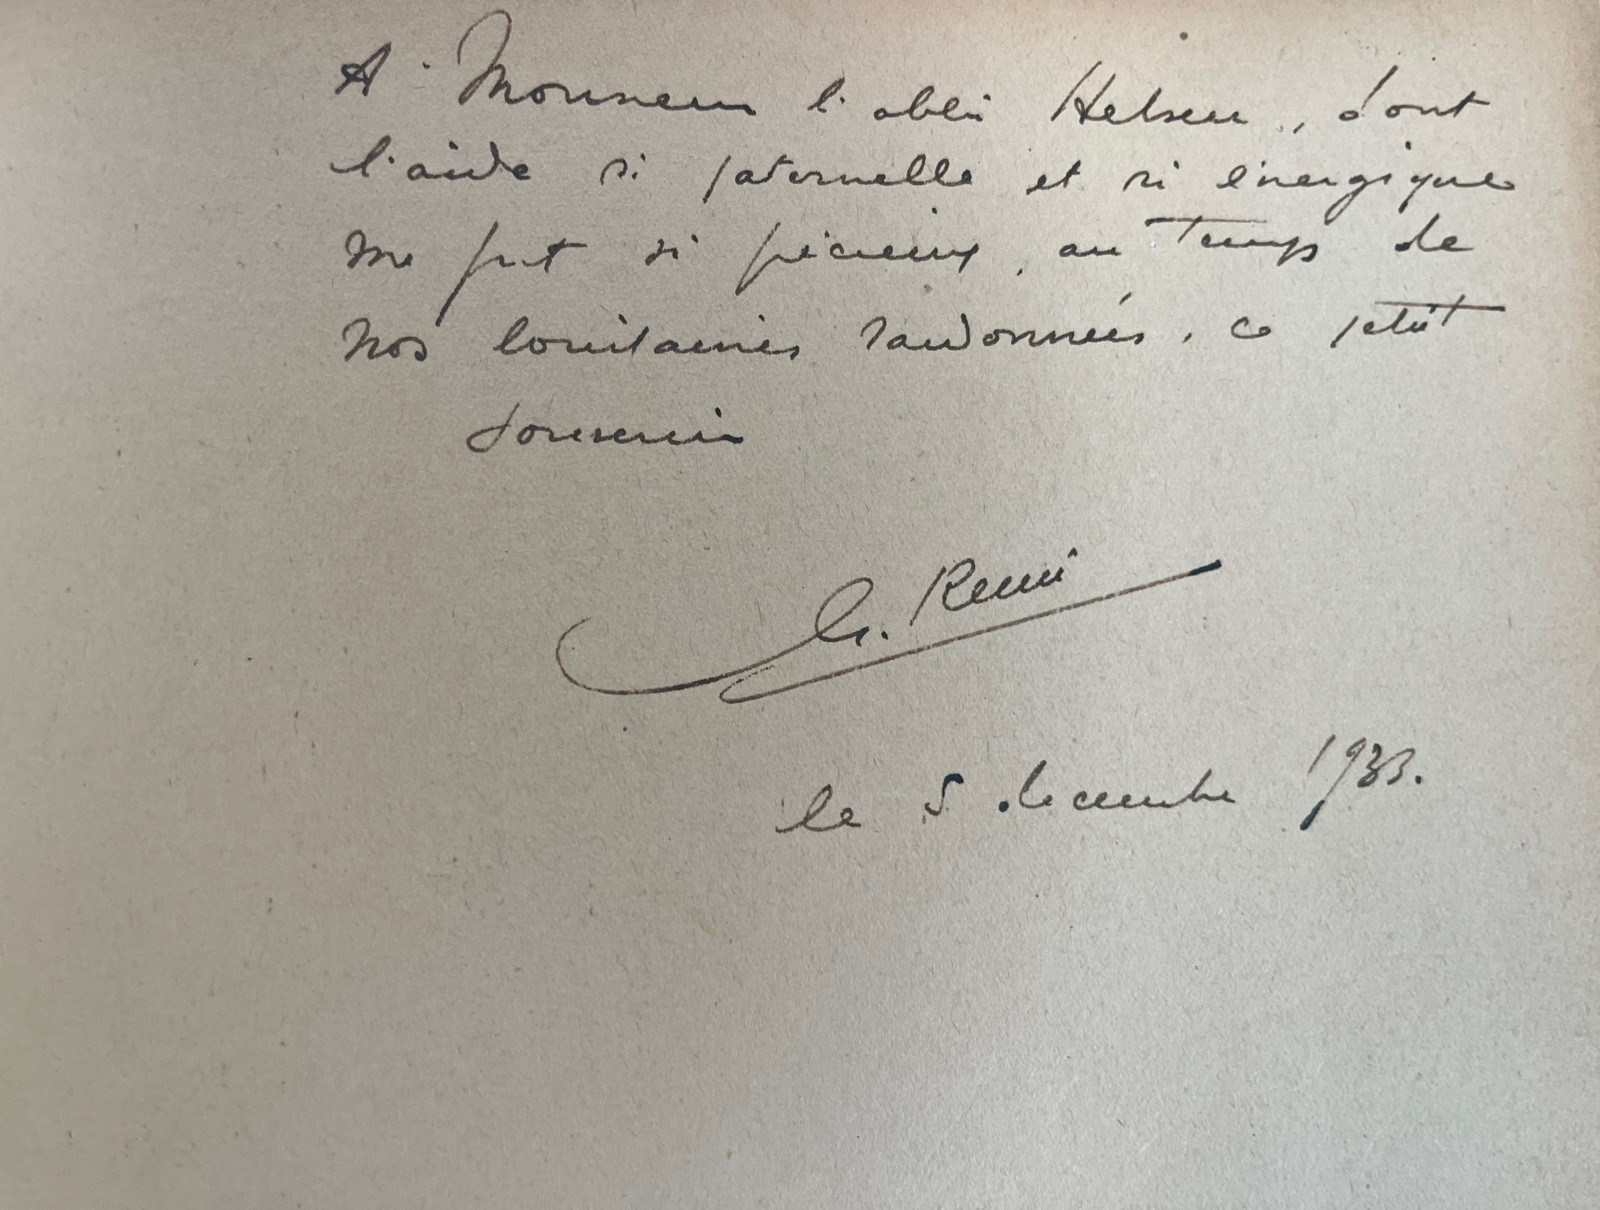 A Monsieur l'abbé Helsen, dont
l'aide si paternelle et si énergique
me fut si précieuse, au temps de
nos lointaines randonnées, ce petit
souvenir
G. Remi
le 5 décembre 1933.